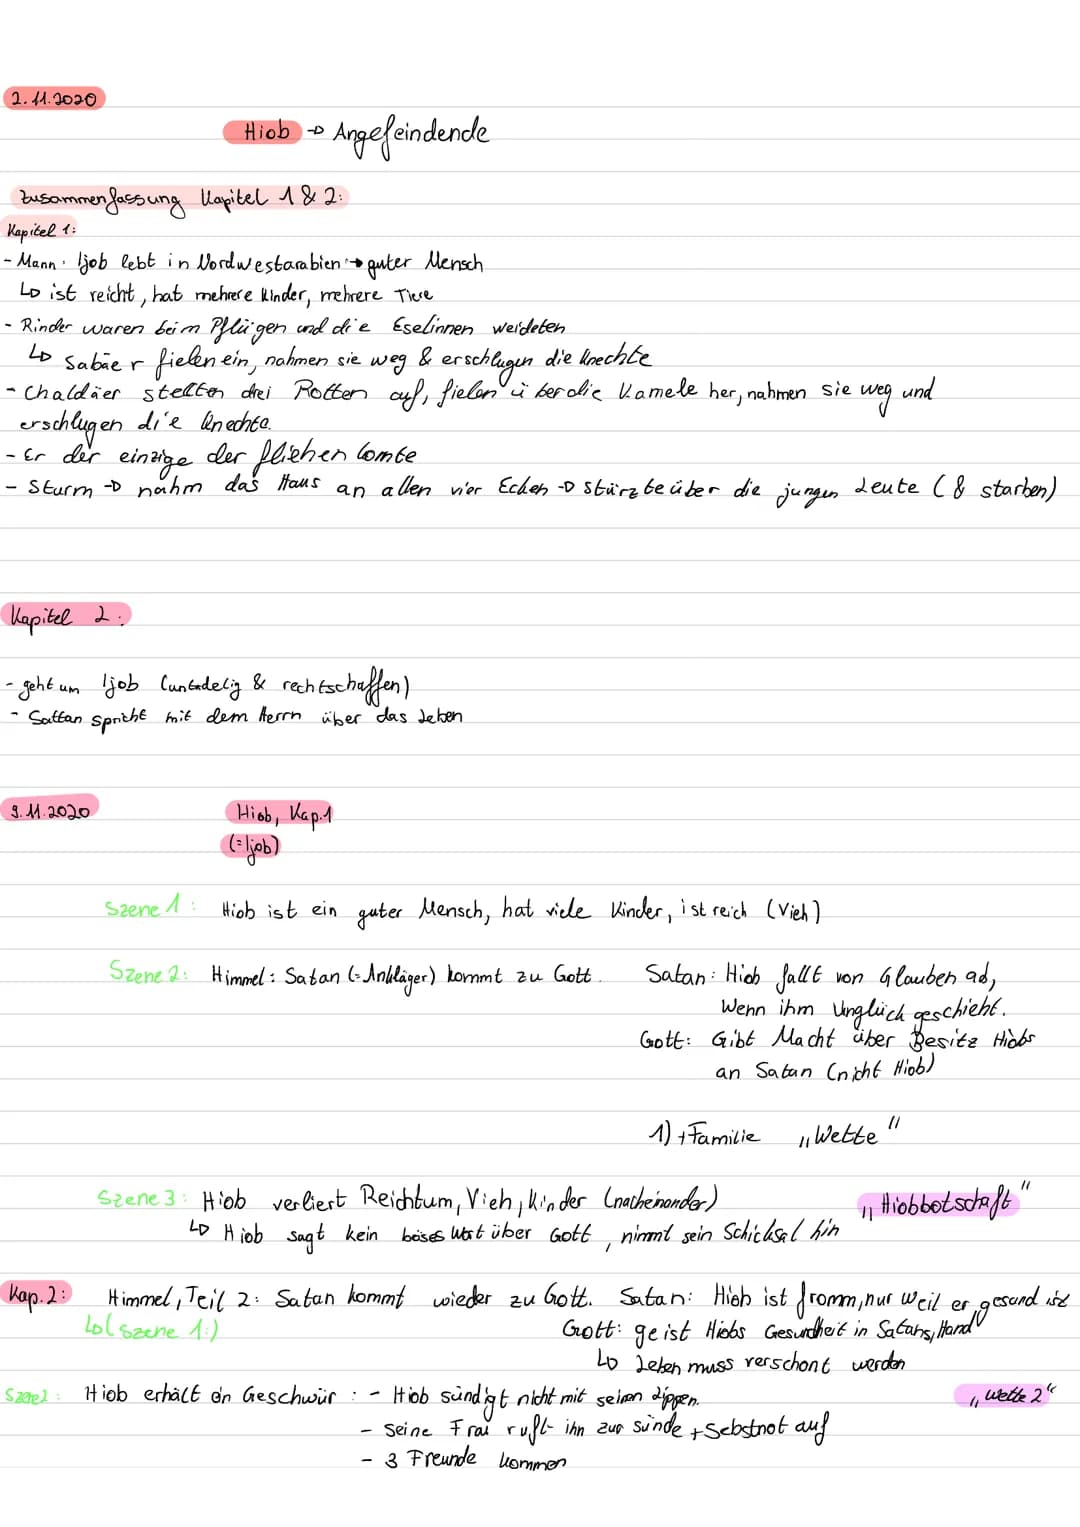 2.11.2020
Hiob → Angefeindende
Zusammenfassung Kapitel 1 & 2:
Kapitel 1:
- Mann: Ijob lebt in Nordwestarabien → guter Mensch
↳ ist reicht, hat mehrere Kinder, mehrere Tiere
- Rinder waren beim Pflügen und die Eselinnen weideten
↳ Sabäer fielen ein, nahmen sie weg & erschlugen die Knechte
- Chaldäer stellten drei Rotten auf, fielen über die Kamele her, nahmen sie weg und
erschlugen die Knechte.
- Er der einzige der fliehen konnte
- Sturm → nahm das Haus an allen vier Ecken → stürzte über die jungen Leute (& starben)
Kapitel 2:
- geht um Ijob (untadelig & rechtschaffen)
- Sattan spricht mit dem Herrn über das Leben
9.11.2020
Hiob, Kap.1
(=Ijob)
Szene 1: Hiob ist ein guter Mensch, hat viele Kinder, ist reich (Vieh)
Szene 2: Himmel: Satan (=Ankläger) kommt zu Gott. Satan: Hiob fällt von Glauben ab,
Wenn ihm Unglück geschieht.
Gott: Gibt Macht über Besitz Hiobs
an Satan (nicht Hiob)
1) + Familie „Wette"
Szene 3: Hiob verliert Reichtum, Vieh, Kinder (nacheinander) „Hiobbotschaft"
↳ Hiob sagt kein böses Wort über Gott, nimmt sein Schicksal hin
Kap. 2: Himmel, Teil 2: Satan kommt wieder zu Gott. Satan: Hiob ist fromm, nur weil er gesund ist
↳ (Szene 1:) Gott: ge ist Hiobs Gesundheit in Satans, Hand
↳ Leben muss verschont werden
Szene2: Hiob erhält ein Geschwür: - Hiob sündigt nicht mit seinen Lippen. „Wette 2"
- seine Frau ruft ihn zur Sünde + Sebstnot auf
- 3 Freunde kommen